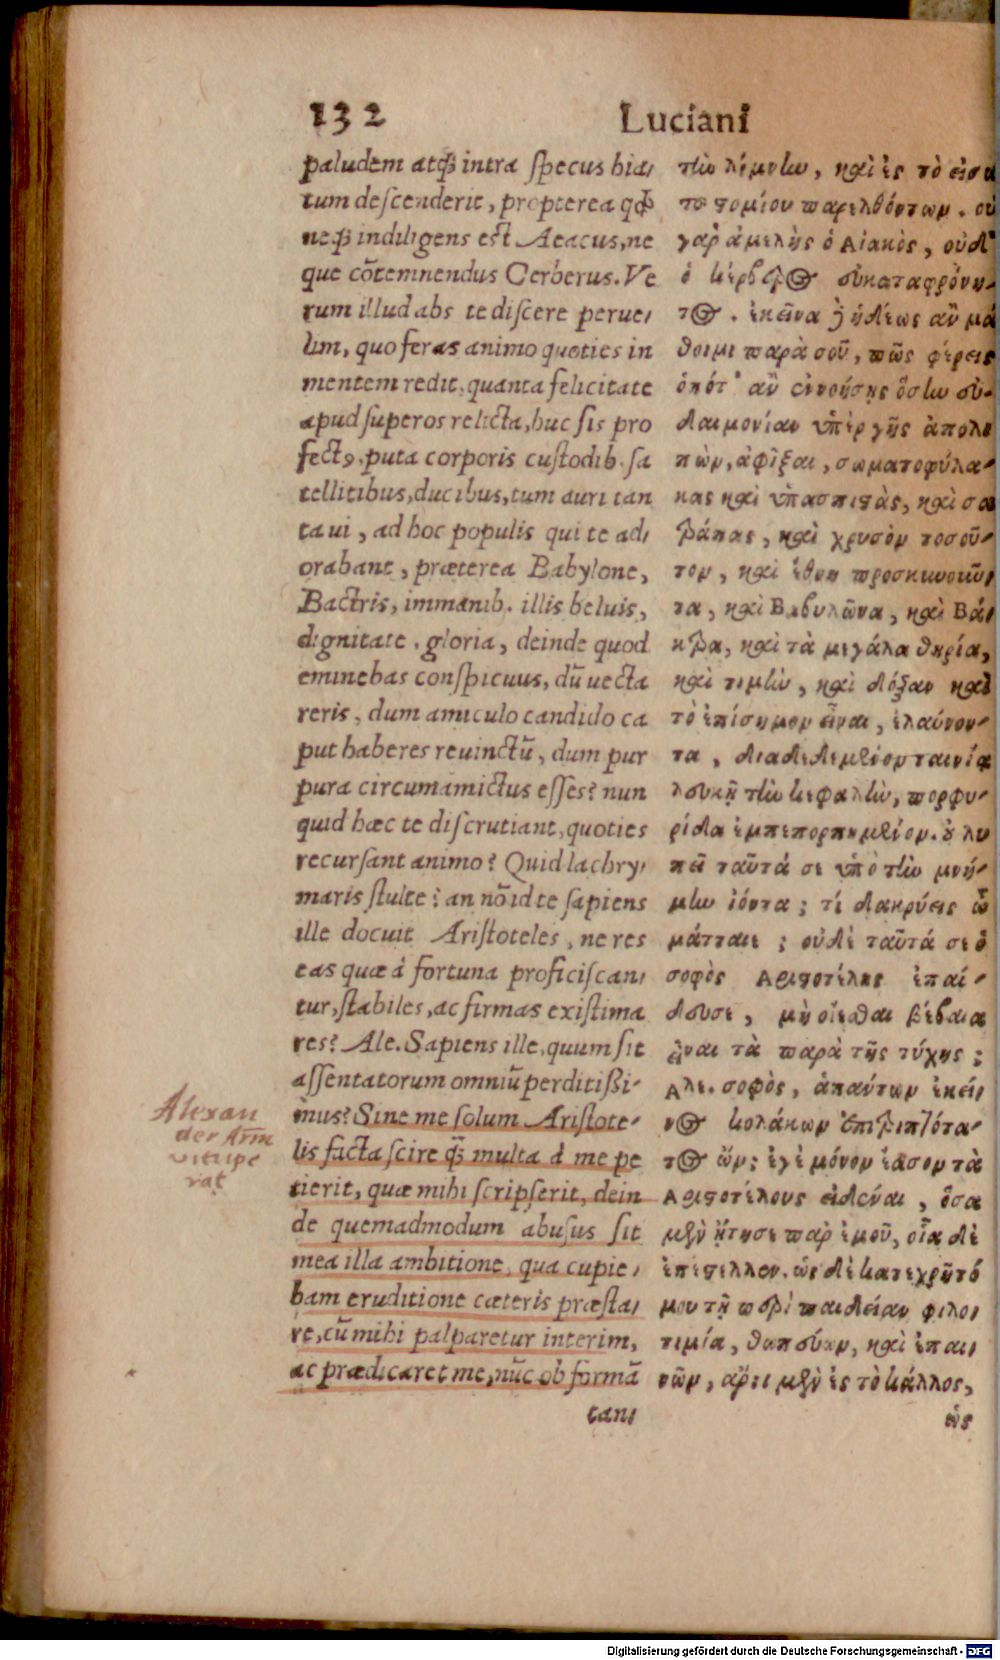 132
Luciani
paludem atq̃ intra ſpecus hia⸗
tum deſcenderit, propterea qđ
neq̃ indiligens est Aeacus, ne
que cõtemnendus Cerberus. Ve
rum illud abs te diſcere perue⸗
lim, quo feras animo quoties in
mentem redit, quanta felicitate
apud ſuperos relicta, huc ſis pro
fectꝰ, puta corporis cuſtodib. ſa
tellitibus, ducibus, tum auri tan
ta ui, ad hoc populis qui te ad⸗
orabant, præterea Babylone,
Bactris, immanib. illis beluis,
dignitate, gloria, deinde quod
eminebas conſpicuus, dũ uecta
reris, dum amiculo candido ca
put haberes reuinctũ, dum pur
pura circumamictus eſſes? nun
quid hæc te diſcrutiant, quoties
recurſant animo? Quid lachry⸗
maris ſtulte? an nõ id te ſapiens
ille docuit Ariſtoteles, ne res
eas quæ á fortuna proficiſcan⸗
tur, ſtabiles, ac firmas exiſtima
res? Ale. Sapiens ille, quum ſit
aſſentatorum omniũ perditißi⸗
mus? Sine me ſolum Ariſtote⸗
lis facta ſcire q̃ multa á me pe
tierit, quæ mihi ſcripſerit, dein
de quemadmodum abuſus ſit
mea illa ambitione, qua cupie⸗
bam eruditione cæteris præſta⸗
re, cũ mihi palparetur interim,
ac prædicaret me, nũc ob formã
tan⸗
τὴν λίμνην, καὶ ἐς τὸ εἴσω
τοῦ στομίου παρελθόντων. οὐ
γὰρ ἀμελὴς ὁ Αἰακὸς, οὐδ'
ὁ κέρβερος εὐκαταφρόνη-
τος. ἐκεῖνα δὲ ἡδέως ἂν μά
θοιμι παρὰ σοῦ, πῶς φέρεις
ὁπότ' ἂν ἐννοήσῃς ὅσην εὐ-
δαιμονίαν ὑπὲρ γῆς ἀπολι
πὼν, ἀφῖξαι, σωματοφύλα-
κας καὶ ὑπασπιστὰς, καὶ σα
τράπας, καὶ χρυσὸν τοσοῦ-
τον, καὶ ἔθνη προσκυνοῦν
τα, καὶ Βαβυλῶνα, καὶ Βά⸗
κτρα, καὶ τὰ μεγάλα θηρία,
καὶ τιμὴν, καὶ δόξαν καὶ
τὸ ἐπίσημον εἶναι, ἐλαύνον⸗
τα, διαδεδεμένον ταινίᾳ
λευκῇ τὴν κεφαλὴν, πορφυ-
ρίδα ἐμπεπορπημένον. οὐ λυ
πεῖ ταῦτά σε ὑπὸ τὴν μνή-
μην ἰόντα; τί δακρύεις ὦ
μάταιε; οὐδὲ ταῦτά σε ὁ
σοφὸς Αριστοτέλης ἐπαί-
δευσε, μὴ οἴεσθαι βέβαια
εἶναι τὰ παρὰ τῆς τύχης;
Αλε. σοφὸς, ἁπάντων ἐκεῖ⸗
νος κολάκων ἐπιτριπτότα-
τος ὤν; ἐμὲ μόνον ἔασον τὰ
Αριστοτέλους εἰδέναι, ὅσα
μὲν ᾔτησε παρ' ἐμοῦ, οἷα δὲ
ἐπέστελλεν. ὡς δὲ κατεχρῆτό
μου τῇ περὶ παιδείαν φιλο⸗
τιμίᾳ, θωπεύων, καὶ ἐπαι⸗
νῶν, ἄρτι μὲν ἐς τὸ κάλλος,
ὡς
Alexan
der Arist
vitupe
rat
Digitalisierung gefördert durch die Deutsche Forschungsgemeinschaft - DFG